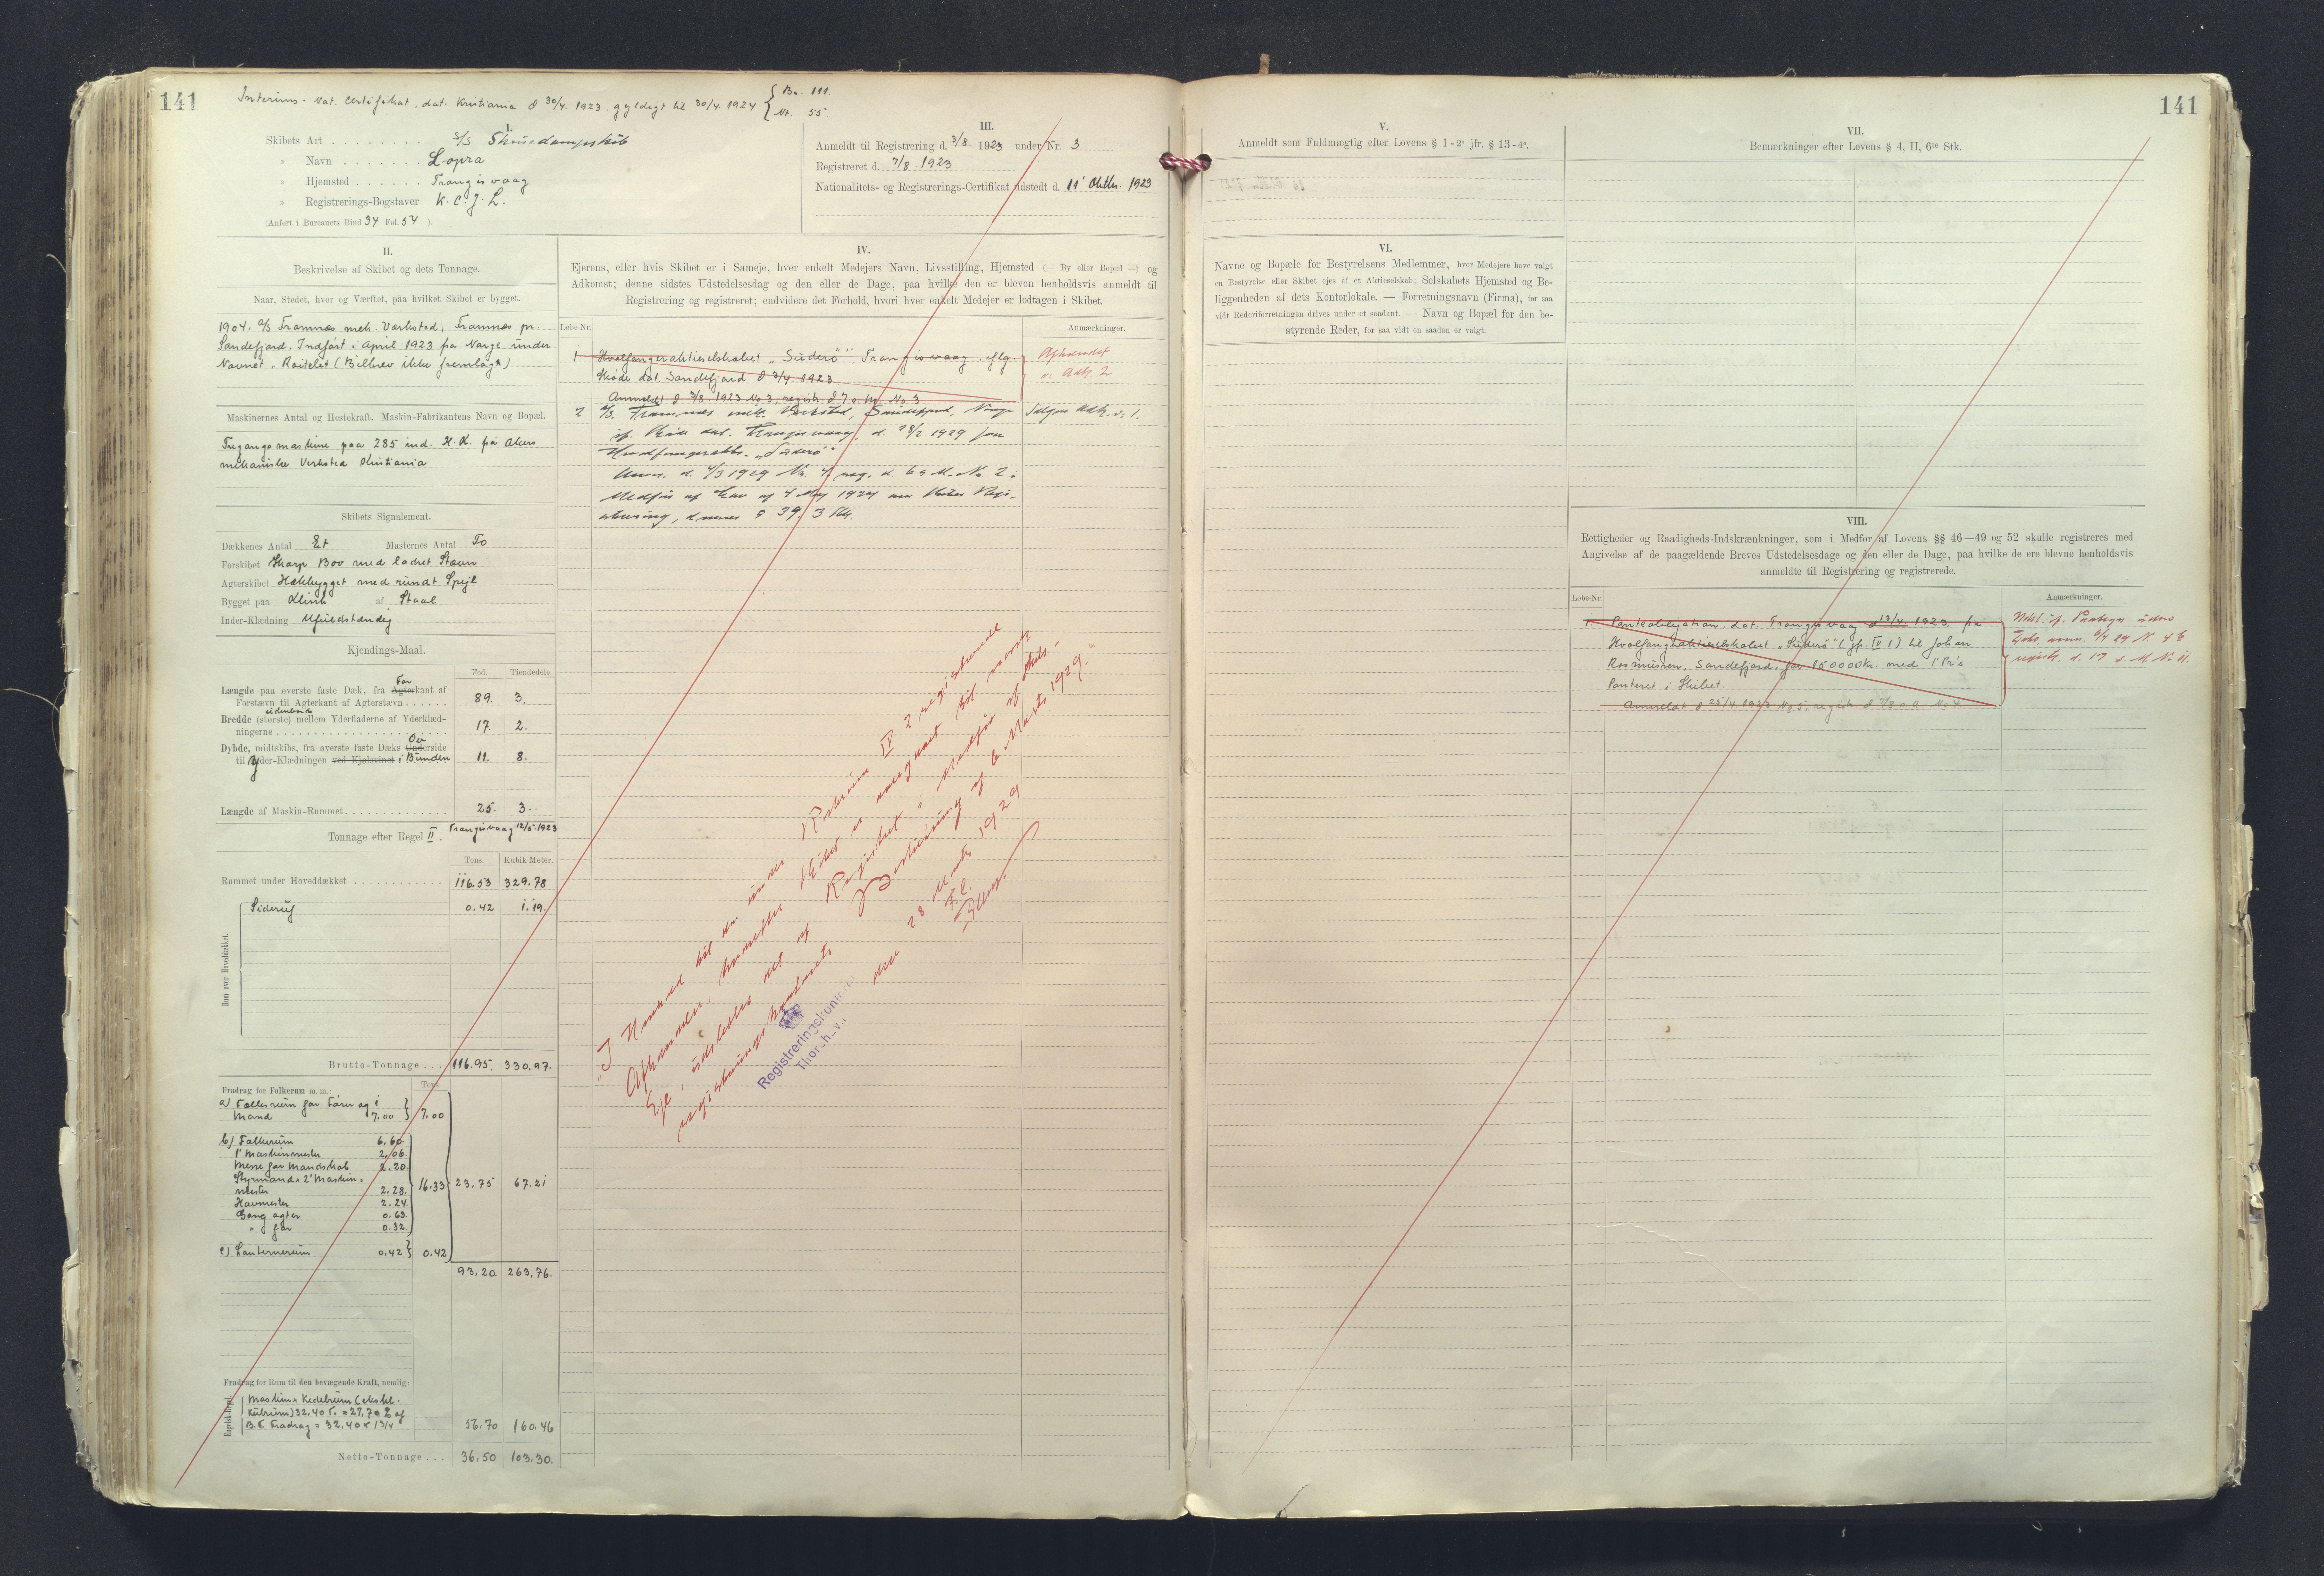 141
Interims-Nat. Certifikat, dat. Kristiania d 30/4. 1923. gyldigt til 30/4. 1924 { Br. 111.
Nr. 55.
I.
Skibets Art . . . . . . . . S/S Skruedampskib
» Navn . . . . . . . Lopra
» Hjemsted . . . . . . Trangisvaag
» Registrerings-Bogstaver K. C. J. L.
(Anført i Bureauets Bind 34 Fol. 54 ).
III.
Anmeldt til Registrering d. 3/8 1923 under Nr. 3
Registreret d. 7/8. 1923
Nationalitets- og Registrerings-Certifikat udstedt d. 11' Oktbr. 1923
II.
Beskrivelse af Skibet og dets Tonnage.
Naar, Stedet, hvor og Værftet, paa hvilket Skibet er bygget.
1904. A/S Framnæs mek. Værksted, Framnæs pr.
Sandefjord. Indført i April 1923 fra Norge under
Navnet (Bilbrev ikke fremlagt)
Maskinernes Antal og Hestekraft. Maskin-Fabrikantens Navn og Bopæl.
Tregangsmaskine paa 285 ind. H.K. fra Akers
mekaniske Verksted Kristiania
Skibets Signalement.
Dækkenes Antal Et Masternes Antal To
Forskibet Skarp Bov med lodret Stævn
Agterskibet Hækbygget med rundt Spejl
Bygget paa Klink af Staal
Inder-Klædning Ufuldstændig
Kjendings-Maal.
Fod. Tiendedele.
Længde paa øverste faste Dæk, fra Agterkant af For
Forstævn til Agterkant af Agterstævn . . . . . . 89. 3.
Bredde (største) mellem Yderfladerne af Yderklæd-
ningerne . . . . . . . . . . . . . . . . . . . . . 17. 2.
Dybde, midtskibs, fra øverste faste Dæks Underside Ov
til Yder-Klædningen ved Kjølsvinet i Bunden 11. 8.
Længde af Maskin-Rummet . . . . . . . . . . . . . . 25. 3.
Tonnage efter Regel II. Trangisvaag 12/5-1923
Tons. Kubik-Meter.
Rummet under Hoveddækket . . . . . . . . . . . . 116.53 329.78
Rum over Hoveddækket.
0.42 1.19.
Brutto-Tonnage . . . 116.95. 330.97.
Fradrag for Folkerum m. m.: Tons.
a) Fællesrum for Fører og 1
Mand 7.00 } 7.00
b) Folkerum 6.60.
1' Maskinmester 2.06.
Messe for Mandskab 2.20.
Styrmand & 2' Maskin-
mester 2.28. 16.33 23.75 67.21
Hovmester 2.24.
Gang agter 0.63.
" for 0.32.
c) Lanternerum 0.42 } 0.42
93.20 263.76.
Fradrag for Rum til den bevægende Kraft, nemlig:
Engelsk-Regel.
Maskin & Kedelrum (ekskl.
Kulrum) 32,40 T. = 27,70 % af
B.T. Fradrag = 32.40 × 1 3/4 56.70 160.46
Netto-Tonnage . . . 36.50 103.30.
IV.
Ejerens, eller hvis Skibet er i Sameje, hver enkelt Medejers Navn, Livsstilling, Hjemsted (— By eller Bopæl —) og
Adkomst; denne sidstes Udstedelsesdag og den eller de Dage, paa hvilke den er bleven henholdsvis anmeldt til
Registrering og registreret; endvidere det Forhold, hvori hver enkelt Medejer er lodtagen i Skibet.
Løbe-Nr. Anmærkninger.
1 Hvalfangeraktieselskabet „Suderö" Trangisvaag, iflg. Afhændet
Skøde dat. Sandefjord d 3/4. 1923 v. Adk. 2
Anmeldt d 3/8 1923 No 3, registr. d 7 s. M. No 3.
2 A/S. Framnæs mek. Værksted, Sandefjord, Norge Sælges Adk. v. 1.
if. Skøde dat. Trangisvaag, d. 28/2 1929 fra
„Suderö"
Anm. d. 4/3 1929 Nr. 4 reg. d. 6 s. M. Nr. 2 i
Medfør af Lov af 4 Maj 1927 om Skibes Regi-
strering, dennes § 39, 3 Stk.
„I Henhold til den under Rubrum IV 2 registrerede
Afhændelse, hvorefter Skibet er overgaaet til norsk
Eje, udslettes det af Registret i Medfør af Skibs-
registreringskontorets Beslutning af 6 Marts 1929."
den 28 Marts 1929
F. C.
Registreringskontoret
Thorshavn
141
V.
Anmeldt som Fuldmægtig efter Lovens § 1 - 2° jfr. § 13 - 4°.
VI.
Navne og Bopæle for Bestyrelsens Medlemmer, hvor Medejere have valgt
en Bestyrelse eller Skibet ejes af et Aktieselskab; Selskabets Hjemsted og Be-
liggenheden af dets Kontorlokale. — Forretningsnavn (Firma), for saa
vidt Rederiforretningen drives under et saadant. — Navn og Bopæl for den be-
styrende Reder, for saa vidt en saadan er valgt.
VII.
Bemærkninger efter Lovens § 4, II, 6te Stk.
VIII.
Rettigheder og Raadigheds-Indskrænkninger, som i Medfør af Lovens §§ 46—49 og 52 skulle registreres med
Angivelse af de paagældende Breves Udstedelsesdage og den eller de Dage, paa hvilke de ere blevne henholdsvis
anmeldte til Registrering og registrerede.
Løbe-Nr. Anmærkninger.
1. Panteobligation dat. Trangisvaag d 13/4 1923 fra
Hvalfangeraktieselskabet „Suderö" (jf. IV 1) til Johan
Rasmussen, Sandefjord, for 250000 Kr. med 1' Pr's
Panteret i Skibet.
Anmeldt d 25/4. 1923 No 5, registr. d 7/8 s. A. No 4.